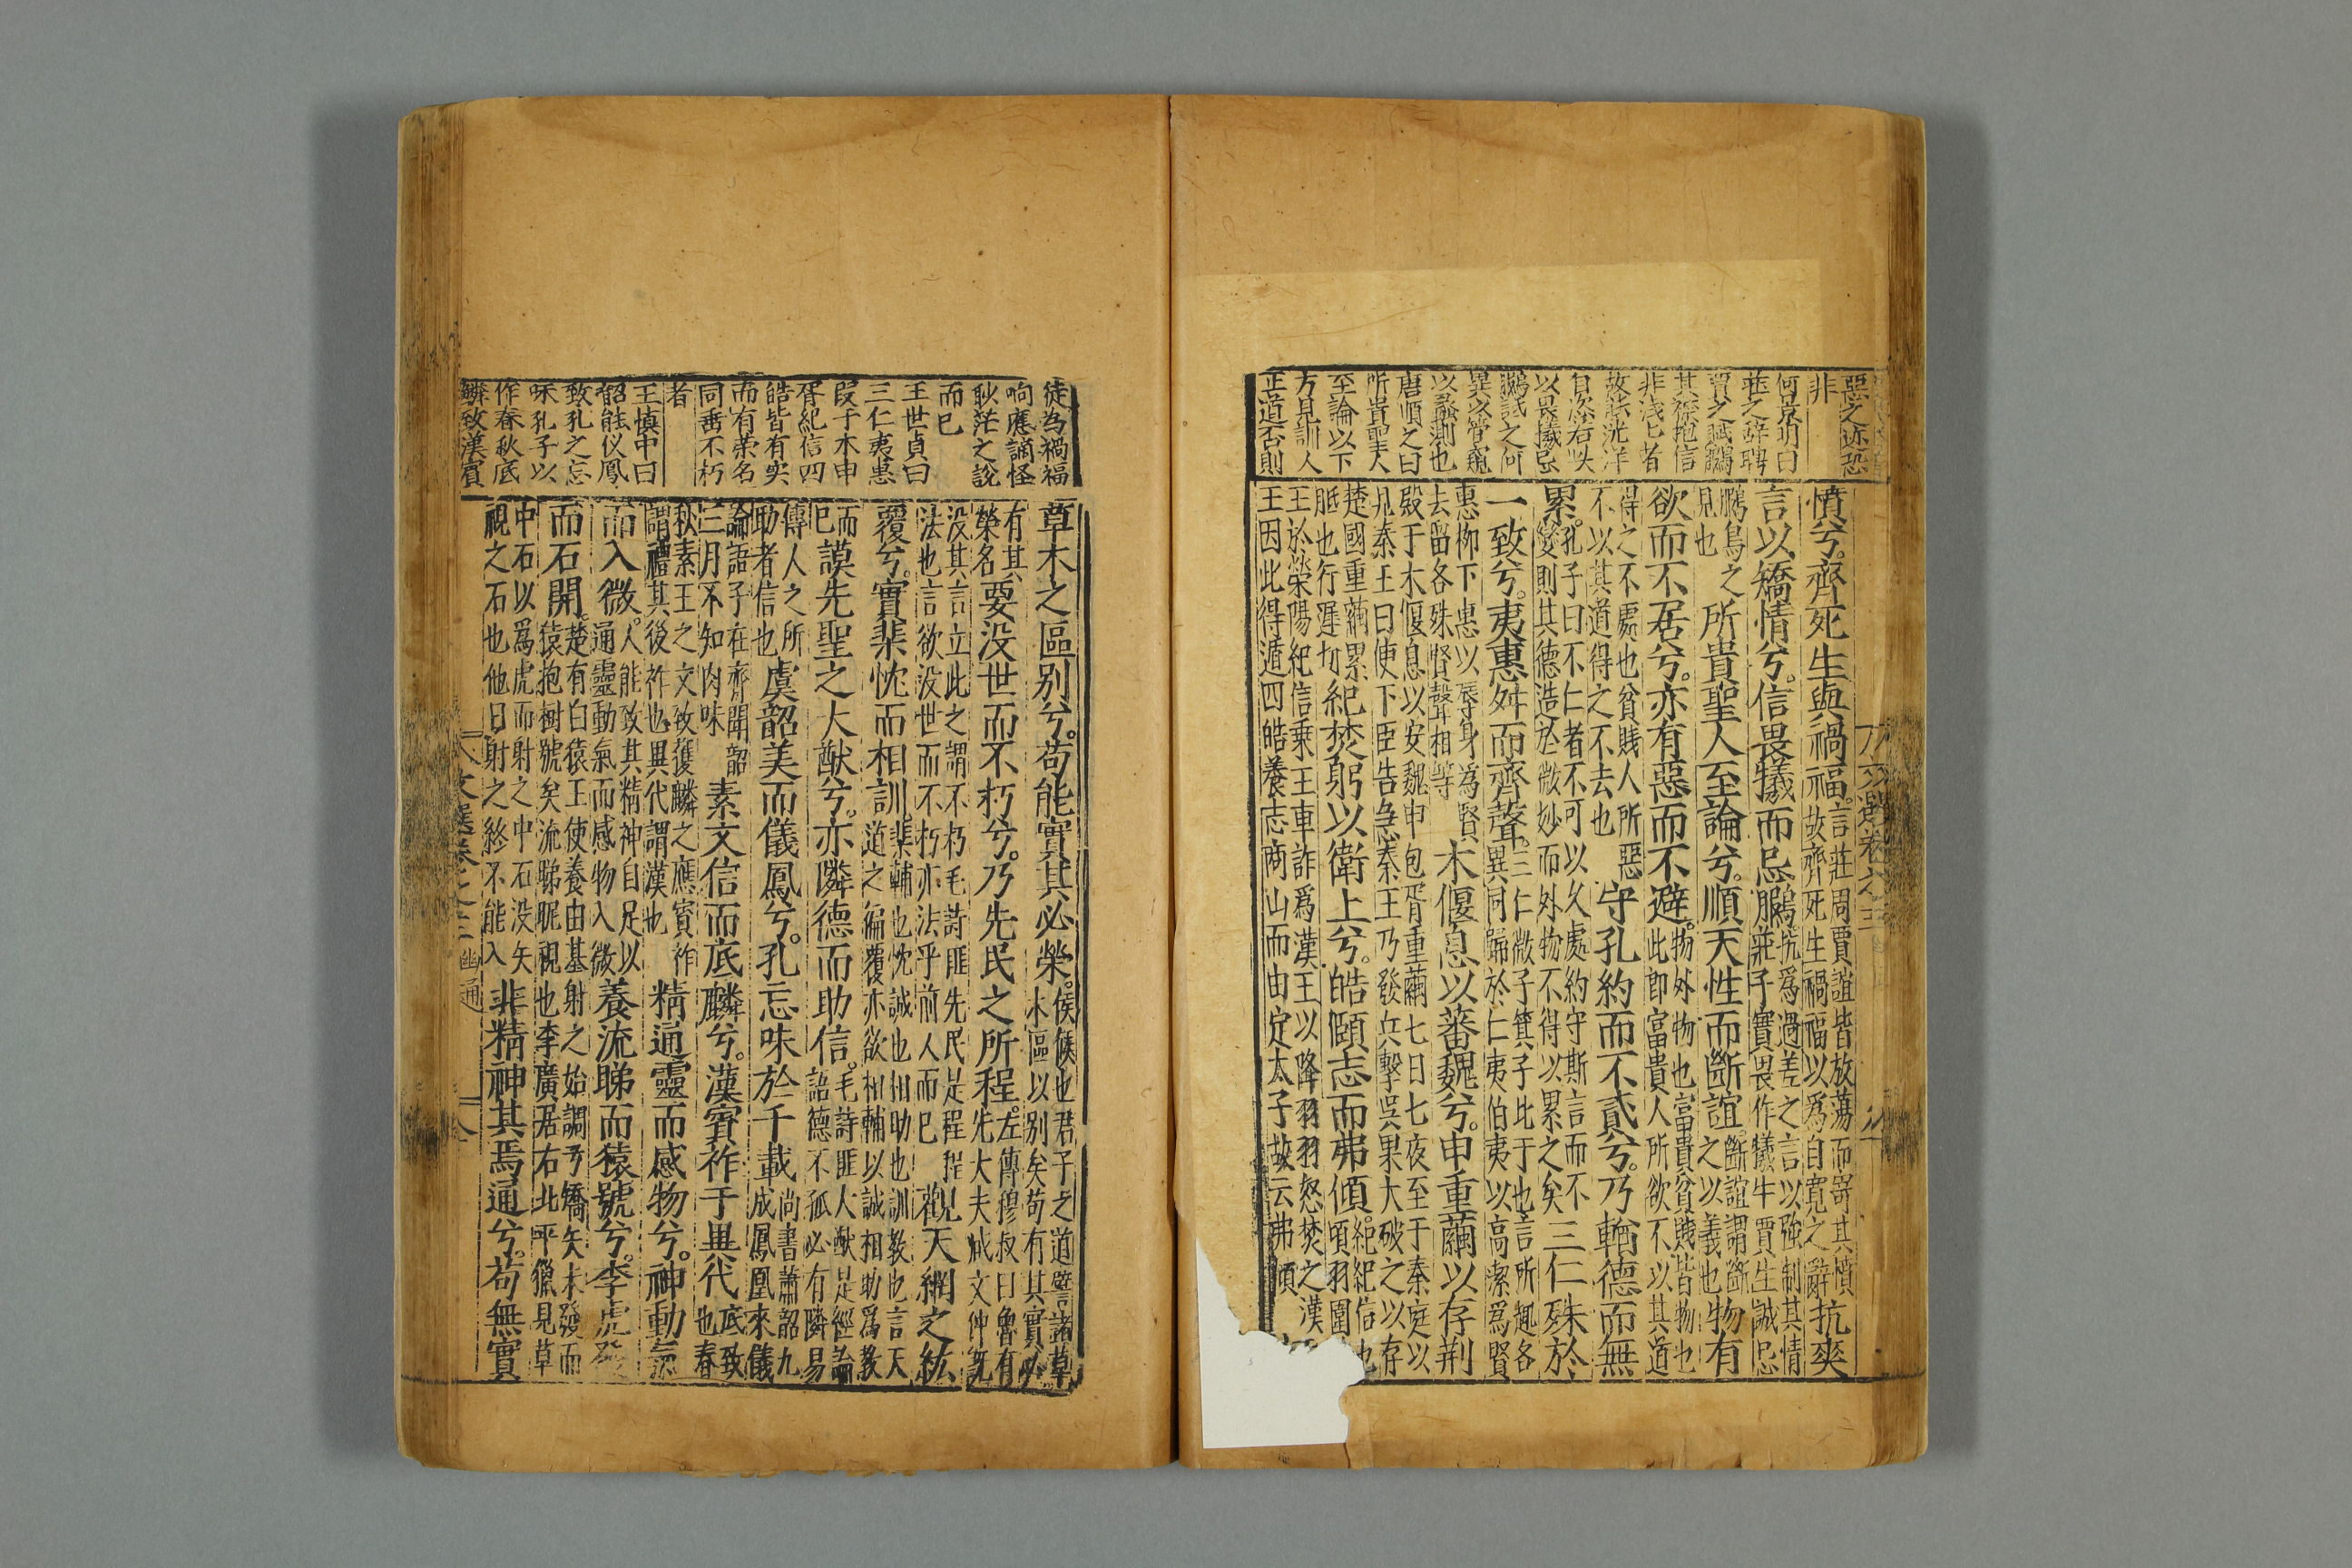 惡之迹恐
非
何景明曰
莊之辭聘
賈之賦鵩
其徐抱信
非淺七者
故能洸洋
自恣若耿
以畏犧忌
鵩試之何
異以管窺
以蠡測也
唐順之曰
所貴聖人
至論以下
方見訓人
正道否則
憤兮。齊死生與禍福。言莊周賈誼皆放蕩而寄其憤
故齊死生禍福以為自寬之辭抗爽
言以矯情兮。信畏犧而忌鵩。抗為過差之言以強制其情
莊子實畏作犧牛賈生誠忌
鵩鳥之
見也所貴聖人至論兮。順天性而斷誼。斷誼謂斷
之以義也物有
欲而不居兮。亦有惡而不避。物外物也富貴貧賤皆物也
此即富貴人所欲不以其道
得之不處也貧賤人所惡
不以其道得之不去也守孔約而不貳兮。乃輶德而無
累。孔子曰不仁者不可以久處約守斯言而不
變則其德造於微妙而外物不得以累之矣三仁殊於
一致兮。夷惠舛而齊聲。三仁微子箕子比干也言所趣各
異同歸於仁夷伯夷以高潔爲賢
惠柳下惠以辱身為賢
去留各殊賢聲相等木偃息以蕃魏兮。申重繭以存荆
段于木偃息以安魏申包胥重繭七日七夜至于秦庭以
見秦王曰使下臣告急秦王乃發兵擊吳果大破之以存
楚國重繭累
胝也行遲切紀焚躬以衛上兮。皓頤志而弗傾。紀紀信也
項羽圍
王於滎陽紀信乗王車詐爲漢王以降羽羽怒焚之漢
王因此得遁四皓養志商山而由定太子故云弗傾
徒為禍福
响應謫怪
耿茫之說
而已
王世貞曰
三仁夷惠
段于木申
胥紀信四
皓皆有实
而有榮名
同垂不朽
者
王慎中曰
韶能仪鳳
致孔之忘
味孔子以
作春秋底
麟致漢賓
草木之區别兮。苟能實其必榮。侯候也君子之道譬諸草
木區以别矣苟有其實必
有其
榮名要没世而不朽兮。乃先民之所程。左傳穆叔曰魯有
先大夫臧文仲既
没其言立此之謂不朽毛詩匪先民是程程
法也言欲没世而不朽亦法乎前人而已觀天網之紘
覆兮。實棐忱而相訓。棐輔也忱誠也相助也訓教也言天
道之徧覆亦欲相輔以誠相助爲教
而
巳謨先聖之大猷兮。亦隣德而助信。毛詩匪人猷是經論
語德不孤必有隣易
傳人之所
助者信也虞韶美而儀鳳兮。孔忘味於千載尚書蕭韶九
成鳳凰來儀
論語子在齊聞韶
三月不知肉味素文信而底麟兮。漢賓祚于異代底致
也春
秋素王之文致獲麟之應賓祚
謂禮其後祚也異代謂漢也精通靈而感物兮。神動氣
而入微。人能致其精神自足以
通靈動氣而感物入微養流睇而猿號兮。李虎發
而石開。楚有白猿王使養由基射之始調弓矯矢未發而
猿抱樹號矣流睇眤視也李廣居右北平獵見草
中石以爲虎而射之中石没矢
視之石也他日射之終不能入非精神其焉通兮。苟無實
文選卷之三 幽通